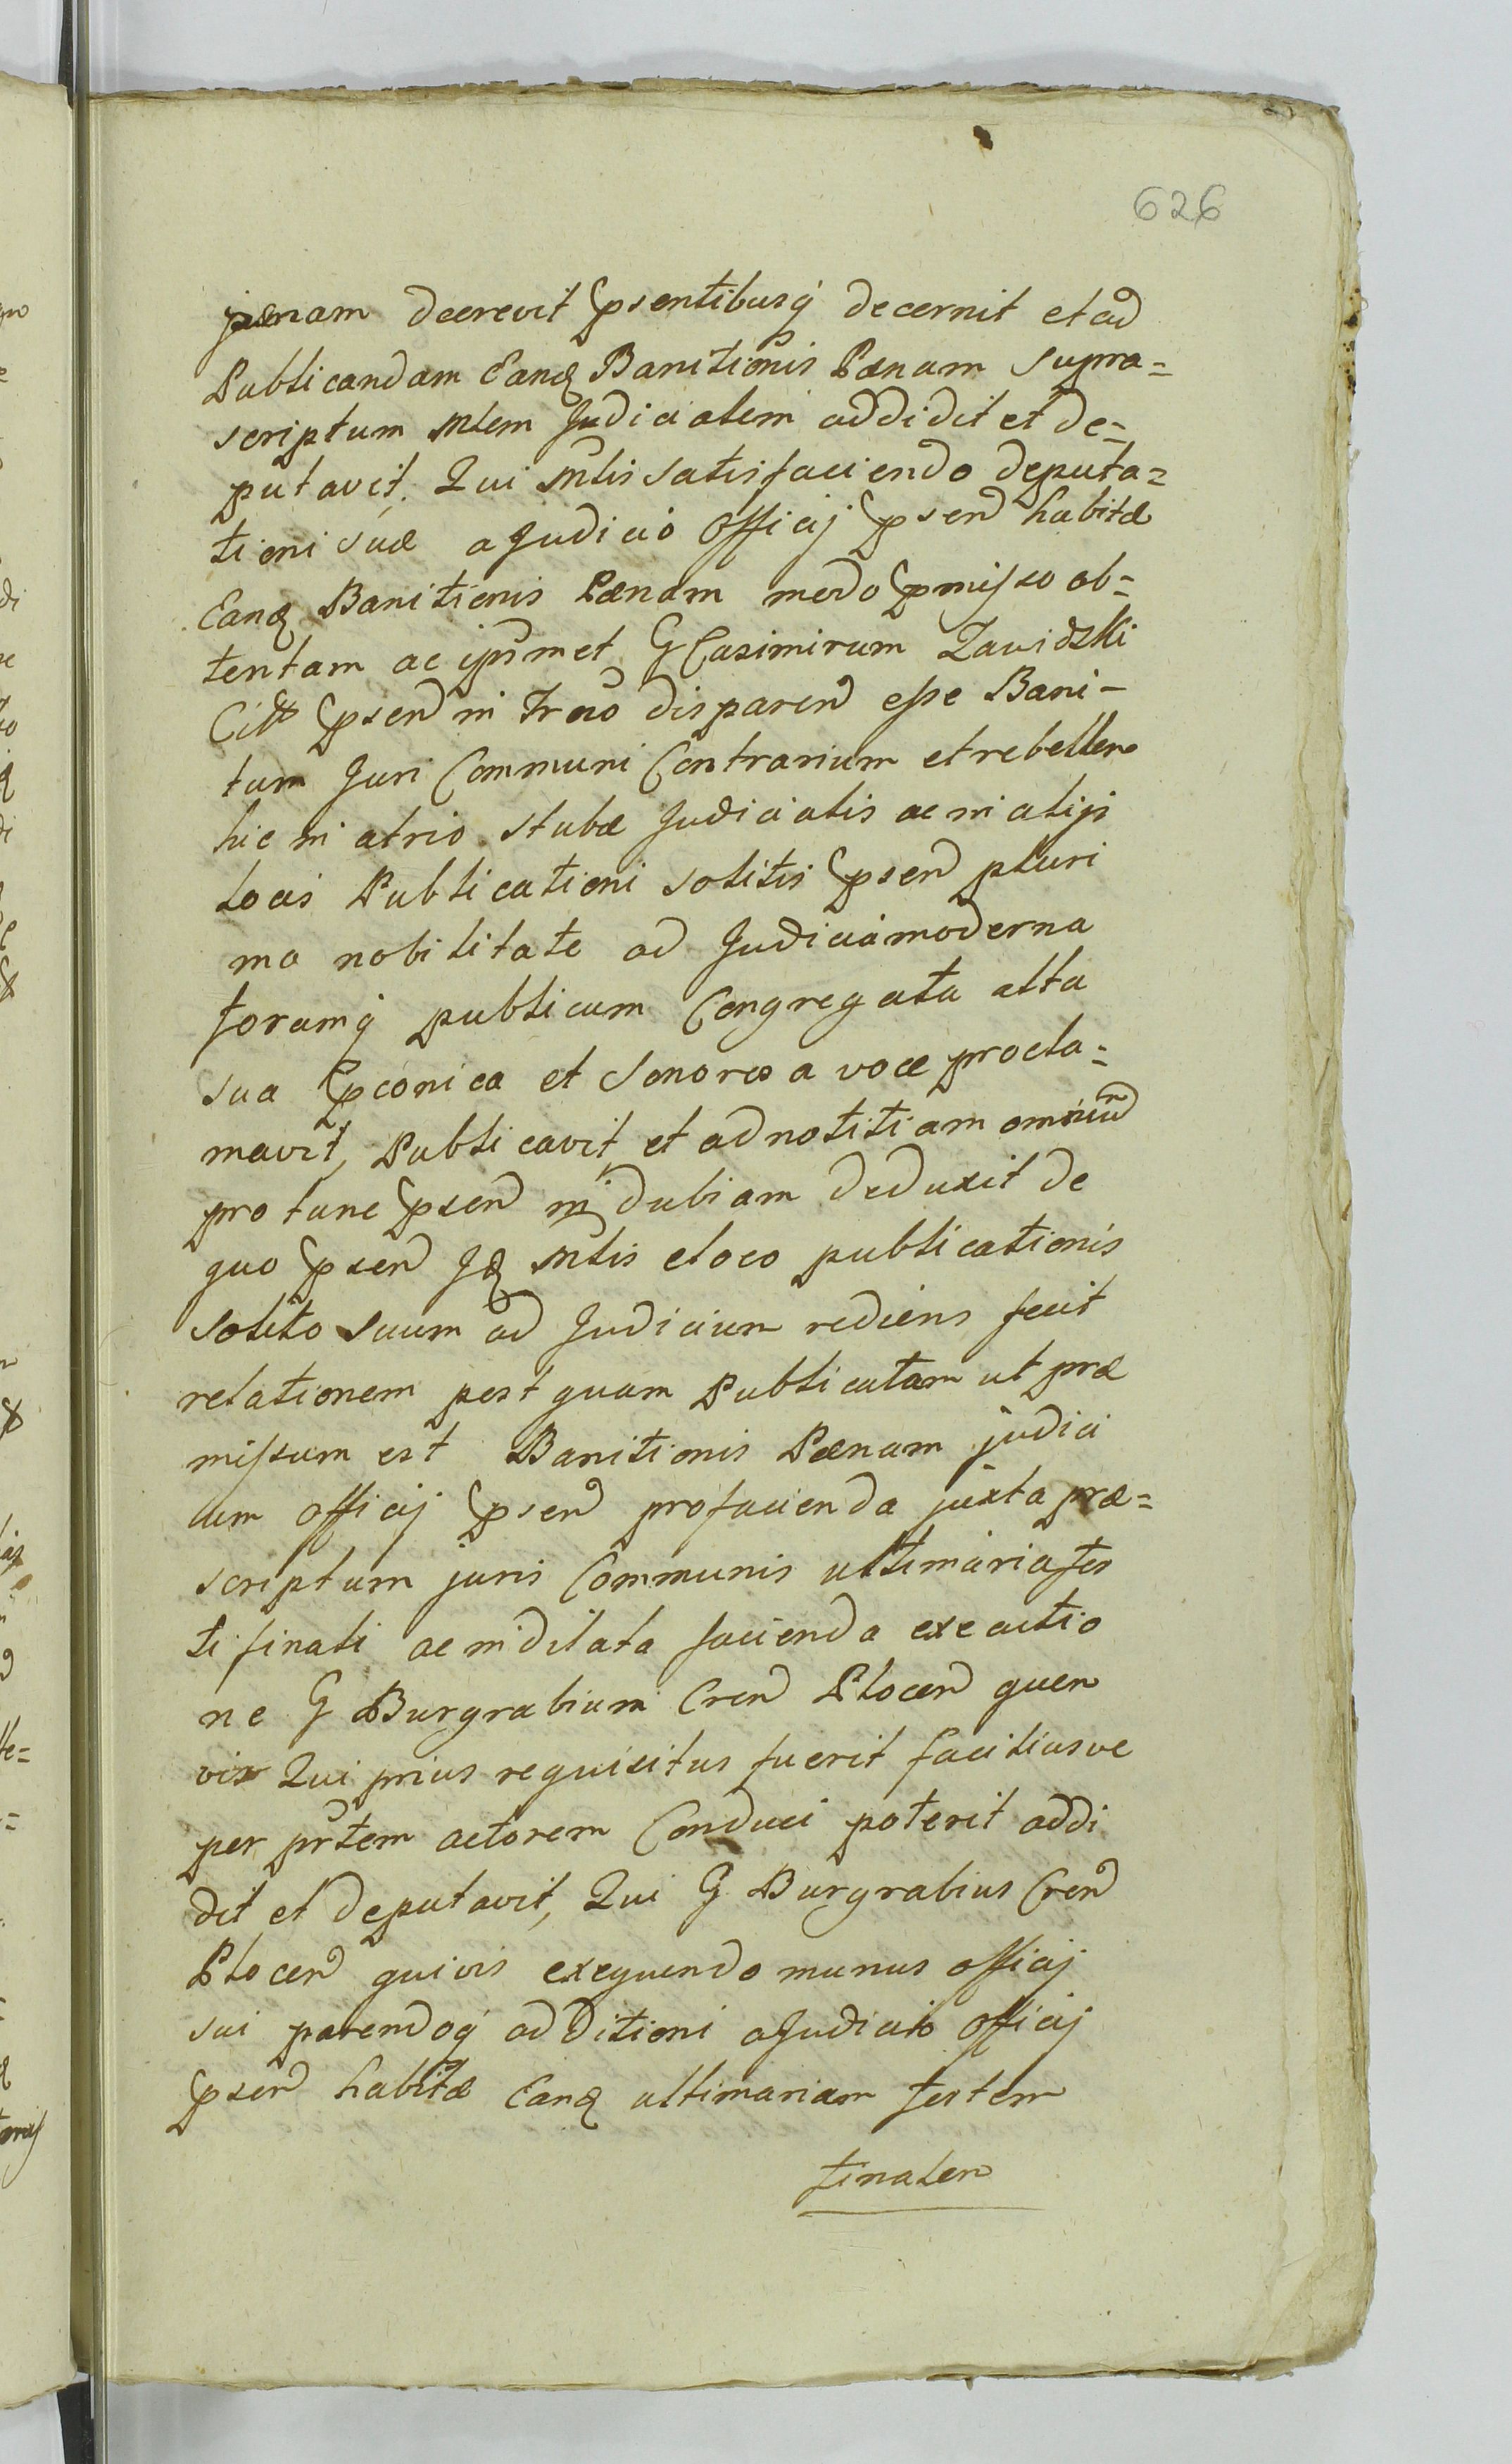 626
pænam decrevit psentibusq́ decernit et ad
Publicandam Eandq Banitionis Pænam supra=
scriptum Mlem Judicialem addidit et de=
putavit, Qui Mlis satisfaciendo deputa=
tioni suæ a Judicio Officij psend habitæ
Eandq Banitionis Pænam modo pmisso ob=
tentam ac ipsumet G Casimirum Zawidzki
Citt psend in Trno disparend esse Bani-
tum Juri Communi Contrarium et rebellem
hic in atrio stubæ Judicialis ac in alijs
locis Publicationi solitis psend pluri
ma nobilitate ad Judicia moderna
forumq́ publicum Congregata alta
sua pconica et sonorosa voce procla=
mavit, Publicavit et ad notitiam omnium
pro tunc psend indubiam deduxit de
quo psend Jdq Mlis e loco publicationis
solito suum ad Judicium rediens fecit
relationem post quam Publicatam ut præ
missum est Banitionis Pænam judici
um officij psend pro facienda juxta præ=
scriptum juris Communis ultimaria fes
ti finali ac indilata facienda executio
ne G Burgrabium Crend Plocend quem
vis Qui prius requisitus fuerit faciliusve
per prtem actorem Conduci poterit addi
dit et deputavit, Qui G Burgrabius Crend
Plocend quivis exequendo munus officij
sui parendoq́ additioni a Judicio Officij
psend habitæ Eandq ultimariam festem
finalem